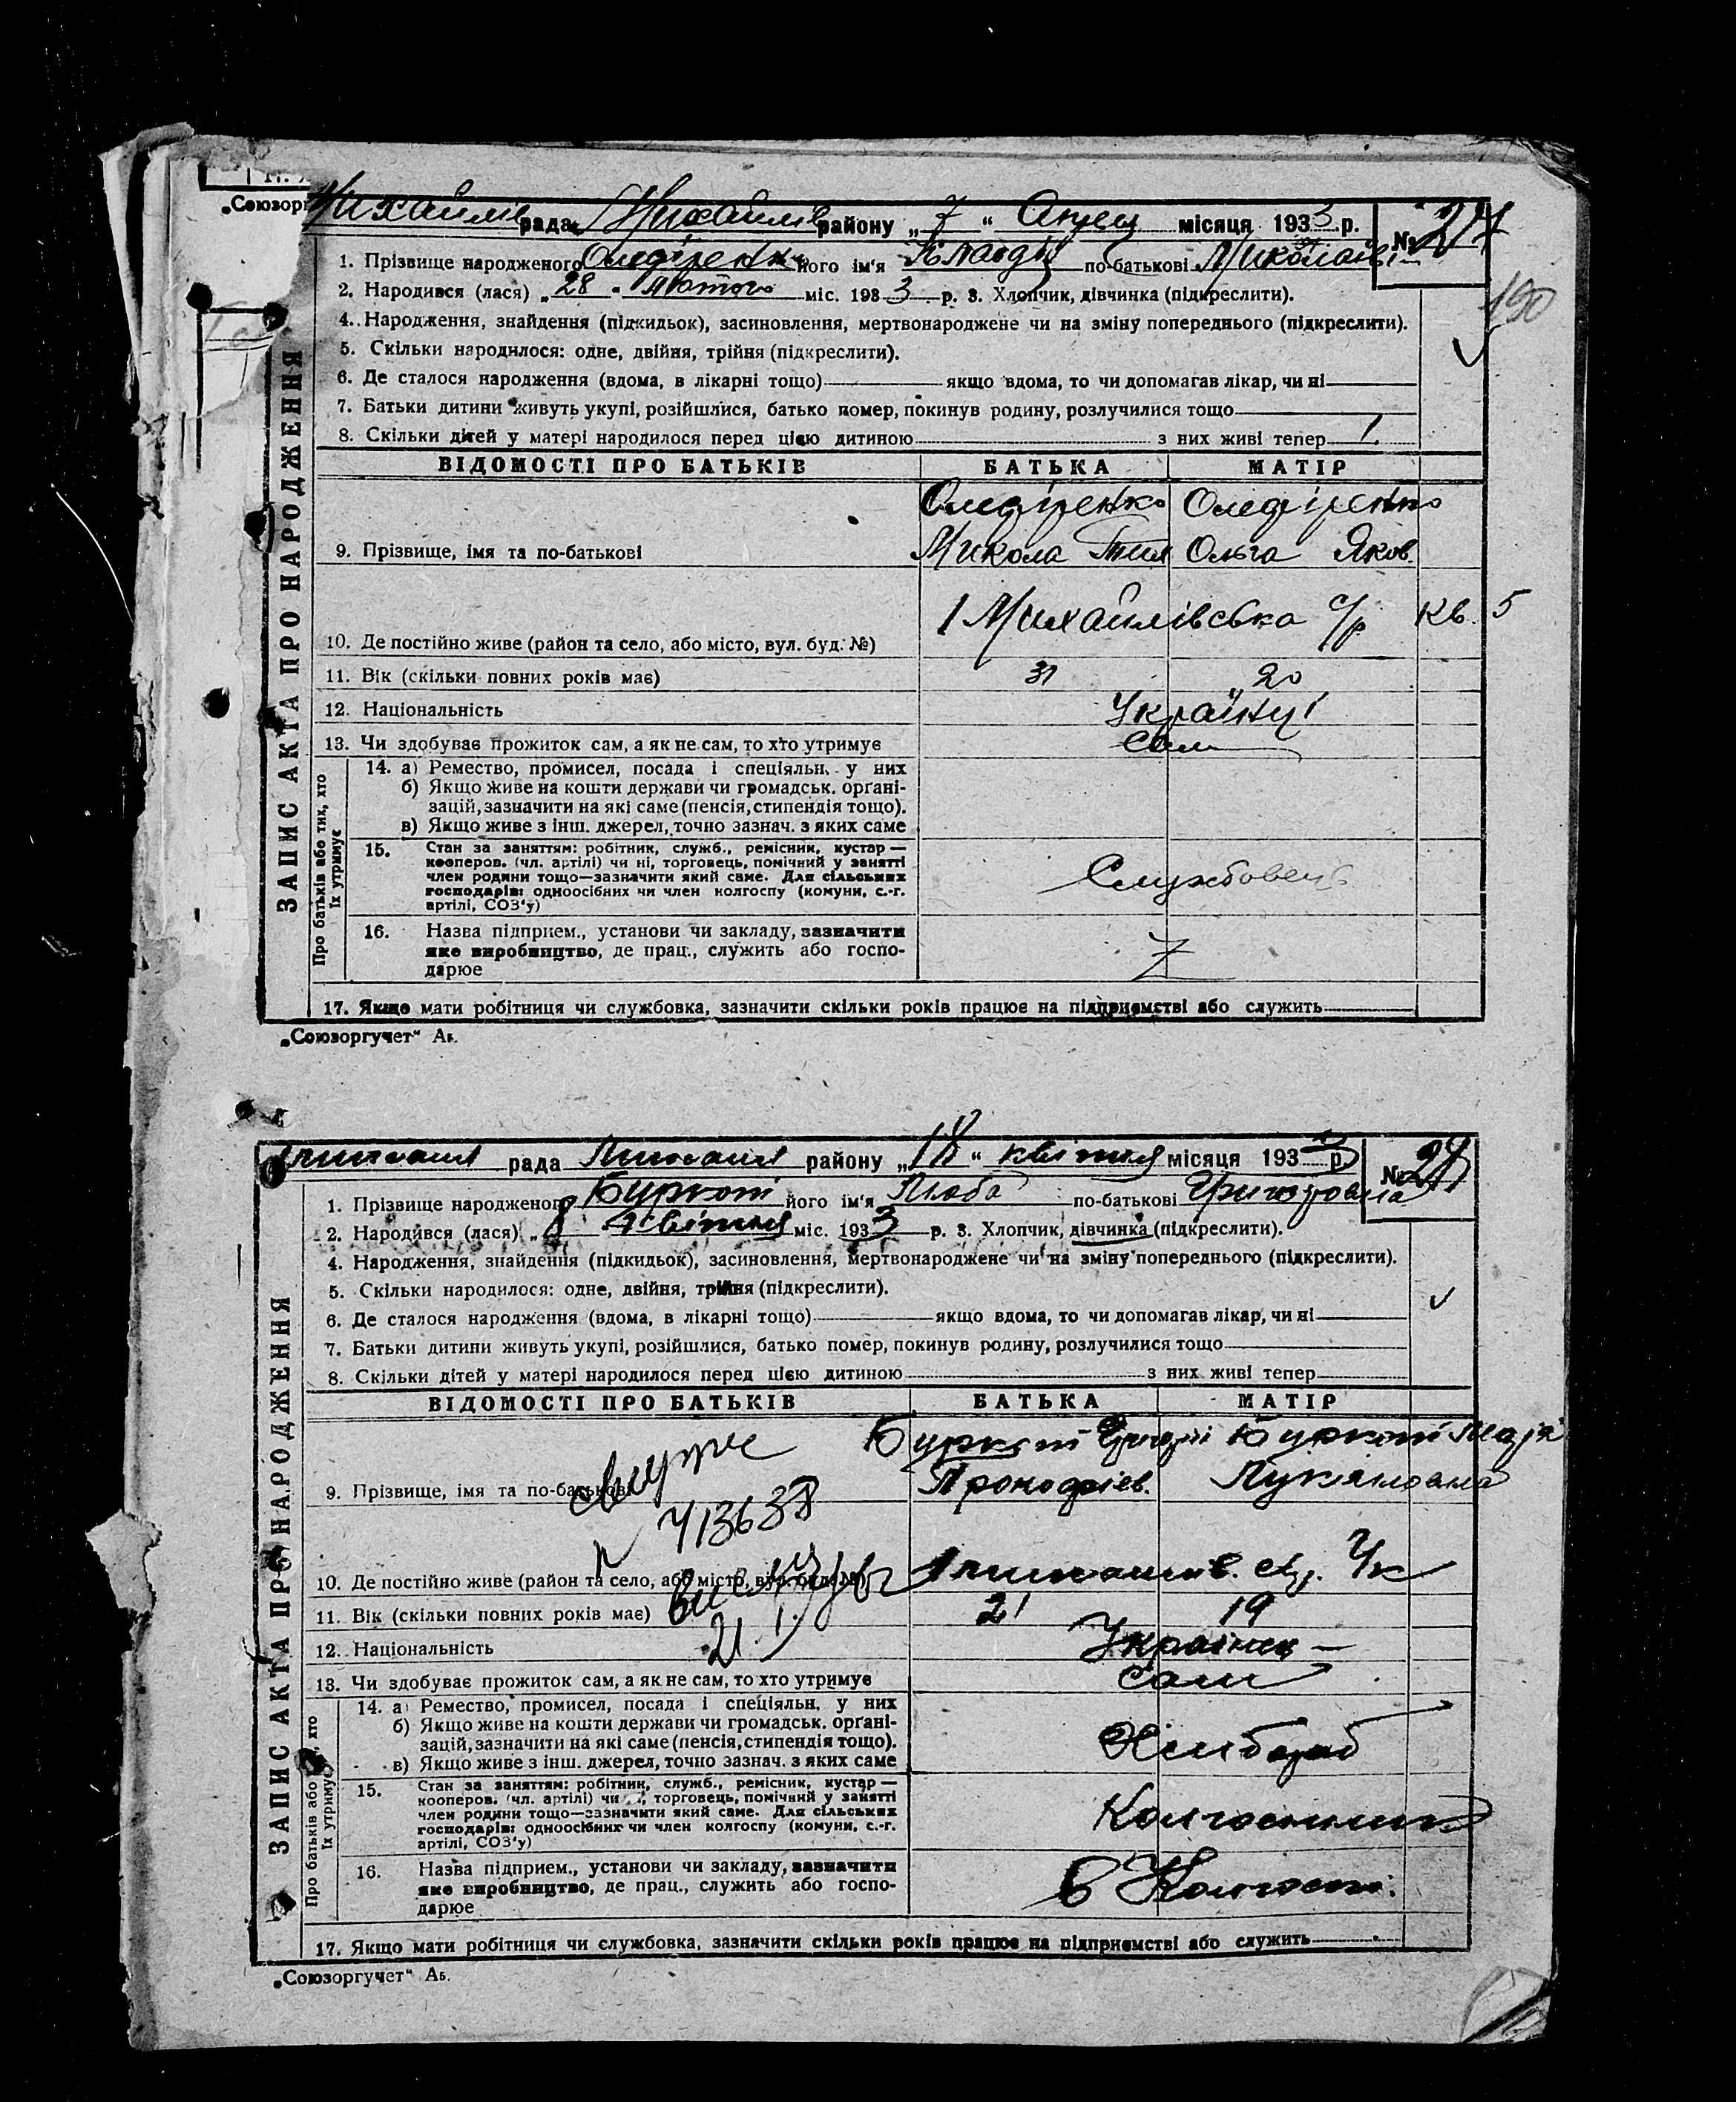 „Союзорг
Михайлів рада Михайлів району „ 7 “ місяця 1933 р. № 27
190
1. Прізвище народженого його ім'я Клавдія по-батькові
2. Народився (лася) „ 28 „ лютого міс. 1933 р. 3. Хлопчик, дівчинка (підкреслити).
4. Народження, знайдення (підкидьок), засиновлення, мертвонароджене чи на зміну попереднього (підкреслити).
5. Скільки народилося: одне, двійня, трійня (підкреслити).
6. Де сталося народження (вдома, в лікарні тощо) якщо вдома, то чи допомагав лікар, чи ні
7. Батьки дитини живуть укупі, розійшлися, батько помер, покинув родину, розлучилися тощо
8. Скільки дітей у матері народилося перед цією дитиною з них живі тепер 1.
ЗАПИС АКТА ПРО НАРОДЖЕННЯ
ВІДОМОСТІ ПРО БАТЬКІВ БАТЬКА МАТІР
Олефіренко Олефіренко
9. Прізвище, імя та по-батькові Микола Тим Ольга Яков.
Михайлівська с/р кв. 5
10. Де постійно живе (район та село, або місто, вул. буд. №)
11. Вік (скільки повних років має) 31 20
12. Національність Українці
13. Чи здобуває прожиток сам, а як не сам, то хто утримує Сам
Про батьків або тих, хто їх утримує
14. а) Ремество, промисел, посада і спеціяльн. у них
б) Якщо живе на кошти держави чи громадськ. орґані-
зацій, зазначити на які саме (пенсія, стипендія тощо).
в) Якщо живе з інш. джерел, точно зазнач. з яких саме
15. Стан за заняттям: робітник, служб., ремісник, кустар —
кооперов. (чл. артілі) чи ні, торговець, помічний у занятті
член родини тощо—зазначити який саме. Для сільських
господарів: одноосібних чи член колгоспу (комуни, с.-г.
артілі, СОЗ'у)
Службовець
16. Назва підприєм., установи чи закладу, зазначити
яке виробництво, де прац., служить або госпо-
дарює
17. Якщо мати робітниця чи службовка, зазначити скільки років працює на підприємстві або служить
„Союзоргучет“ Аь.
рада району „ 18 “ квітня місяця 1933 р. №
1. Прізвище народженого Буркот його ім'я Люба по-батькові Григоровна
2. Народився (лася) „ 8 квітня міс. 1933 р. 3. Хлопчик, дівчинка (підкреслити).
4. Народження, знайдення (підкидьок), засиновлення, мертвонароджене чи на зміну попереднього (підкреслити).
5. Скільки народилося: одне, двійня, трійня (підкреслити).
6. Де сталося народження (вдома, в лікарні тощо) якщо вдома, то чи допомагав лікар, чи ні
7. Батьки дитини живуть укупі, розійшлися, батько помер, покинув родину, розлучилися тощо
8. Скільки дітей у матері народилося перед цією дитиною з них живі тепер
ЗАПИС АКТА ПРО НАРОДЖЕННЯ
ВІДОМОСТІ ПРО БАТЬКІВ БАТЬКА МАТІР
Буркот Григорій Буркот Марія
9. Прізвище, імя та по-батькові Прокофієв. Лукяновна
713638
10. Де постійно живе (район та село, або місто, вул. буд. №)
11. Вік (скільки повних років має) 21 19
12. Національність Українец
13. Чи здобуває прожиток сам, а як не сам, то хто утримує Сам
Про батьків або тих, хто їх утримує
14. а) Ремество, промисел, посада і спеціяльн. у них
б) Якщо живе на кошти держави чи громадськ. орґані-
зацій, зазначити на які саме (пенсія, стипендія тощо).
в) Якщо живе з інш. джерел, точно зазнач. з яких саме
Хлібороб
15. Стан за заняттям: робітник, служб., ремісник, кустар —
кооперов. (чл. артілі) чи ні, торговець, помічний у занятті
член родини тощо—зазначити який саме. Для сільських
господарів: одноосібних чи член колгоспу (комуни, с.-г.
артілі, СОЗ'у)
Колгоспник
16. Назва підприєм., установи чи закладу, зазначити
яке виробництво, де прац., служить або госпо-
дарює
В Колгоспі
17. Якщо мати робітниця чи службовка, зазначити скільки років працює на підприємстві або служить
„Союзоргучет“ Аь.